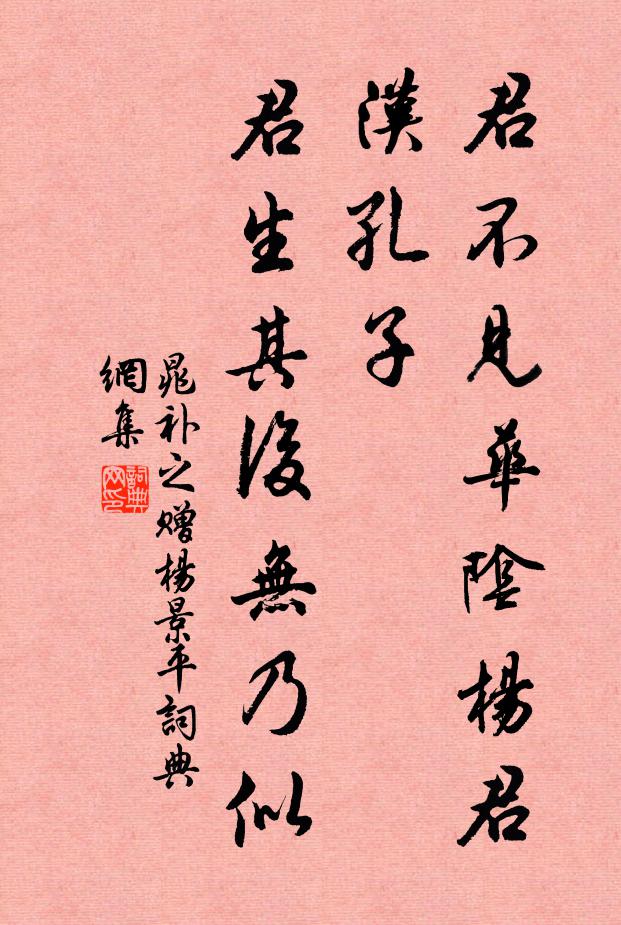 君不見華陰楊君
漢孔子
君生其後無乃似
晁补之赠楊景平詞典
網集
詞典
网印